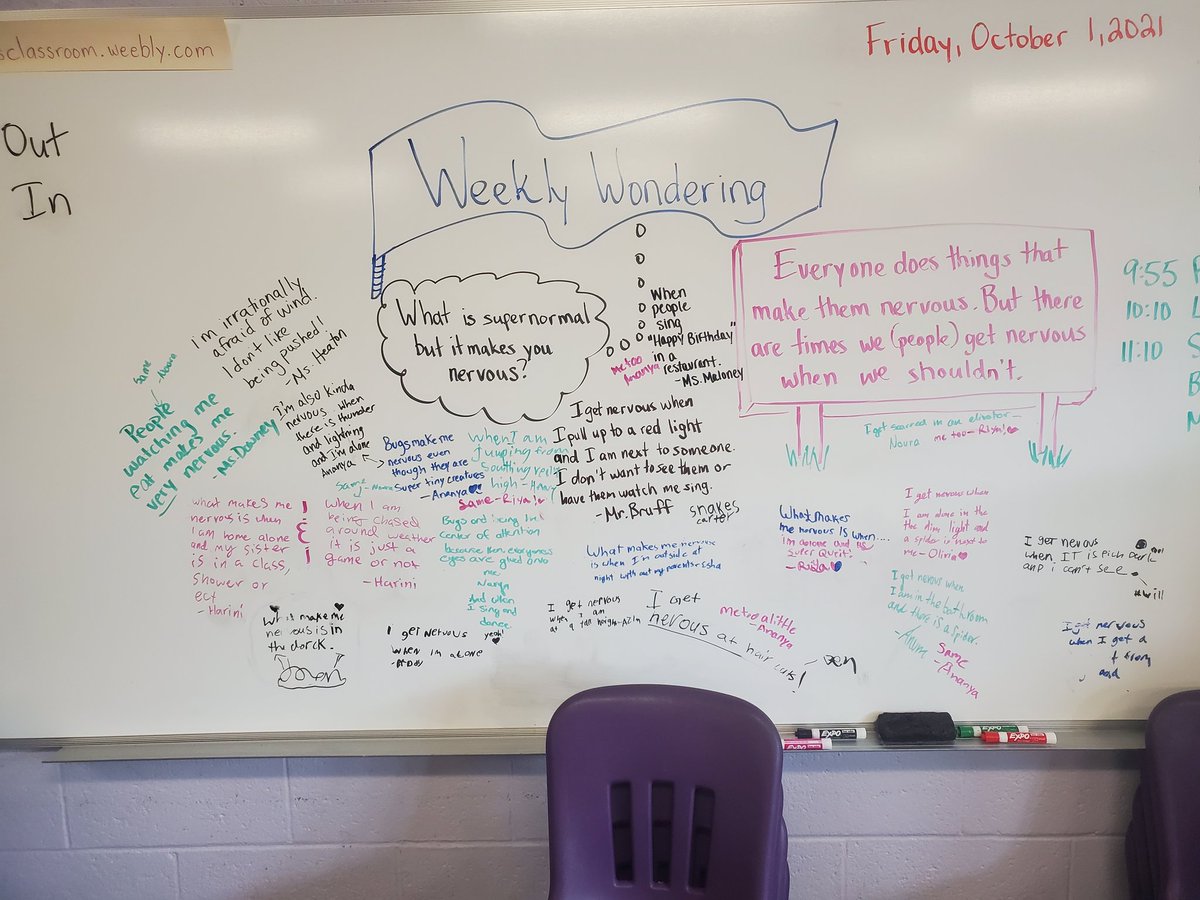 sclassroom.weebly.com
Friday, October 1, 2021
Out
In
Weekly Wondering
What is super normal
but it makes you
nervous?
When
people
sing
"Happy Birthday"
in a
restaurant.
-Ms. Maloney
me too
Ananya
Everyone does things that
make them nervous. But there
are times we (people) get nervous
when we shouldn't.
9:55
10:10
11:10
I'm irrationally
afraid of wind.
I don't like
being pushed!
-Ms. Heaton
same
-Noura
People
watching me
eat makes me
very nervous.
-Ms. Downey
I'm also kinda
nervous when
there is thunder
and lightning
and I'm alone
Ananya
Same-Noura
Bugs make me
nervous even
though they are
super tiny creatures
-Ananya
when I am
jumping from
high-
Same-Riya!
I get nervous when
I pull up to a red light
and I am next to someone.
I don't want to see them or
have them watch me sing.
-Mr. Bruff
snakes
carter
I get scarred in an elivator-
Noura
me too-Riya!
what makes me
nervous is when
I am home alone
and my sister
is in a class,
shower or
ect
-Harini
when I am
being chased
around weather
it is just a
game or not
-Harini
Bugs and being the
center of attention
because then everyones
eyes are glued onto
me.
And when
I sing and
dance.
yeah!
What makes me nervous
is when I'm outside at
night with out my parents-
What makes
me nervous Is when....
I'm alone and its
super Queit!
I get nervous when
I am alone in the
the dim light and
a spider is next to
me-Olivia
I get nervous
when IT is pich Dark
and i can't see
will
What make me
nervous is in
the darck.
I get Nervous
when I'm alone
I get nervous
when I am
at a tall height-
I get
nervous at hair cuts!
me too a little
-Ananya
I get nervous when
I am in the bathroom
and there is a spider.
-Anum
Same
-Ananya
I get nervous
when I get a
from
EXPO
EXPO
EXPO
EXPO